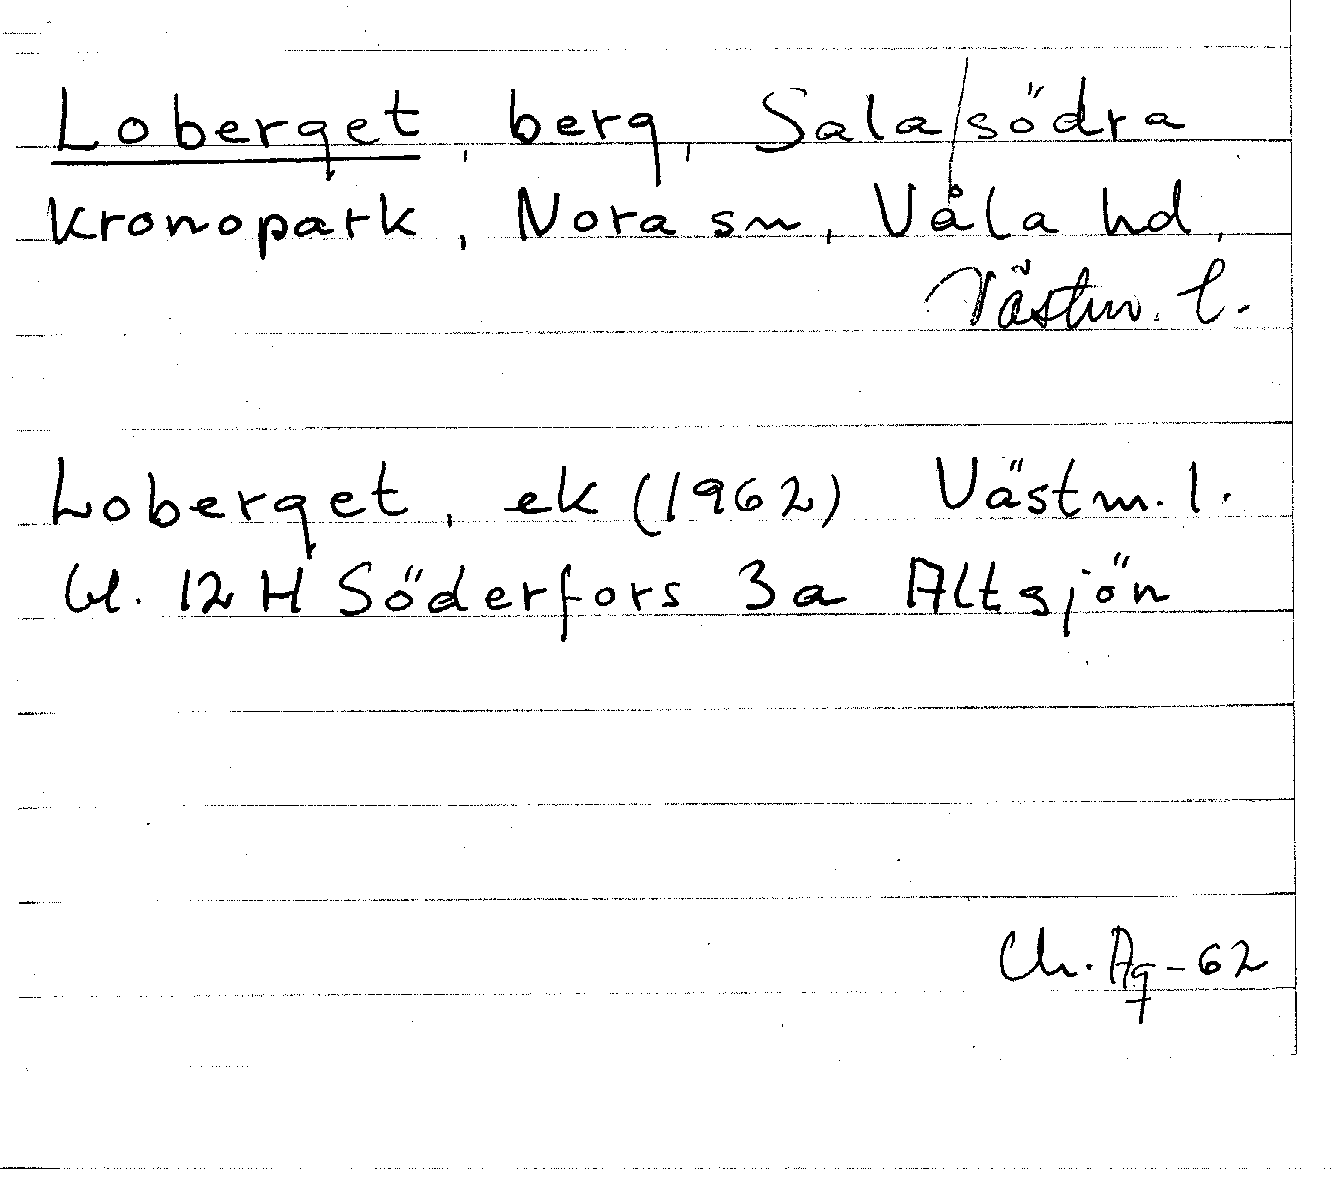 Loberget, berg, Sala södra
kronopark, Nora sn, Våla hd,
Västm. l.
Loberget, ek (1962) Västm. l.
bl. 12 H Söderfors 3a Altsjön
Ch. Ag-62